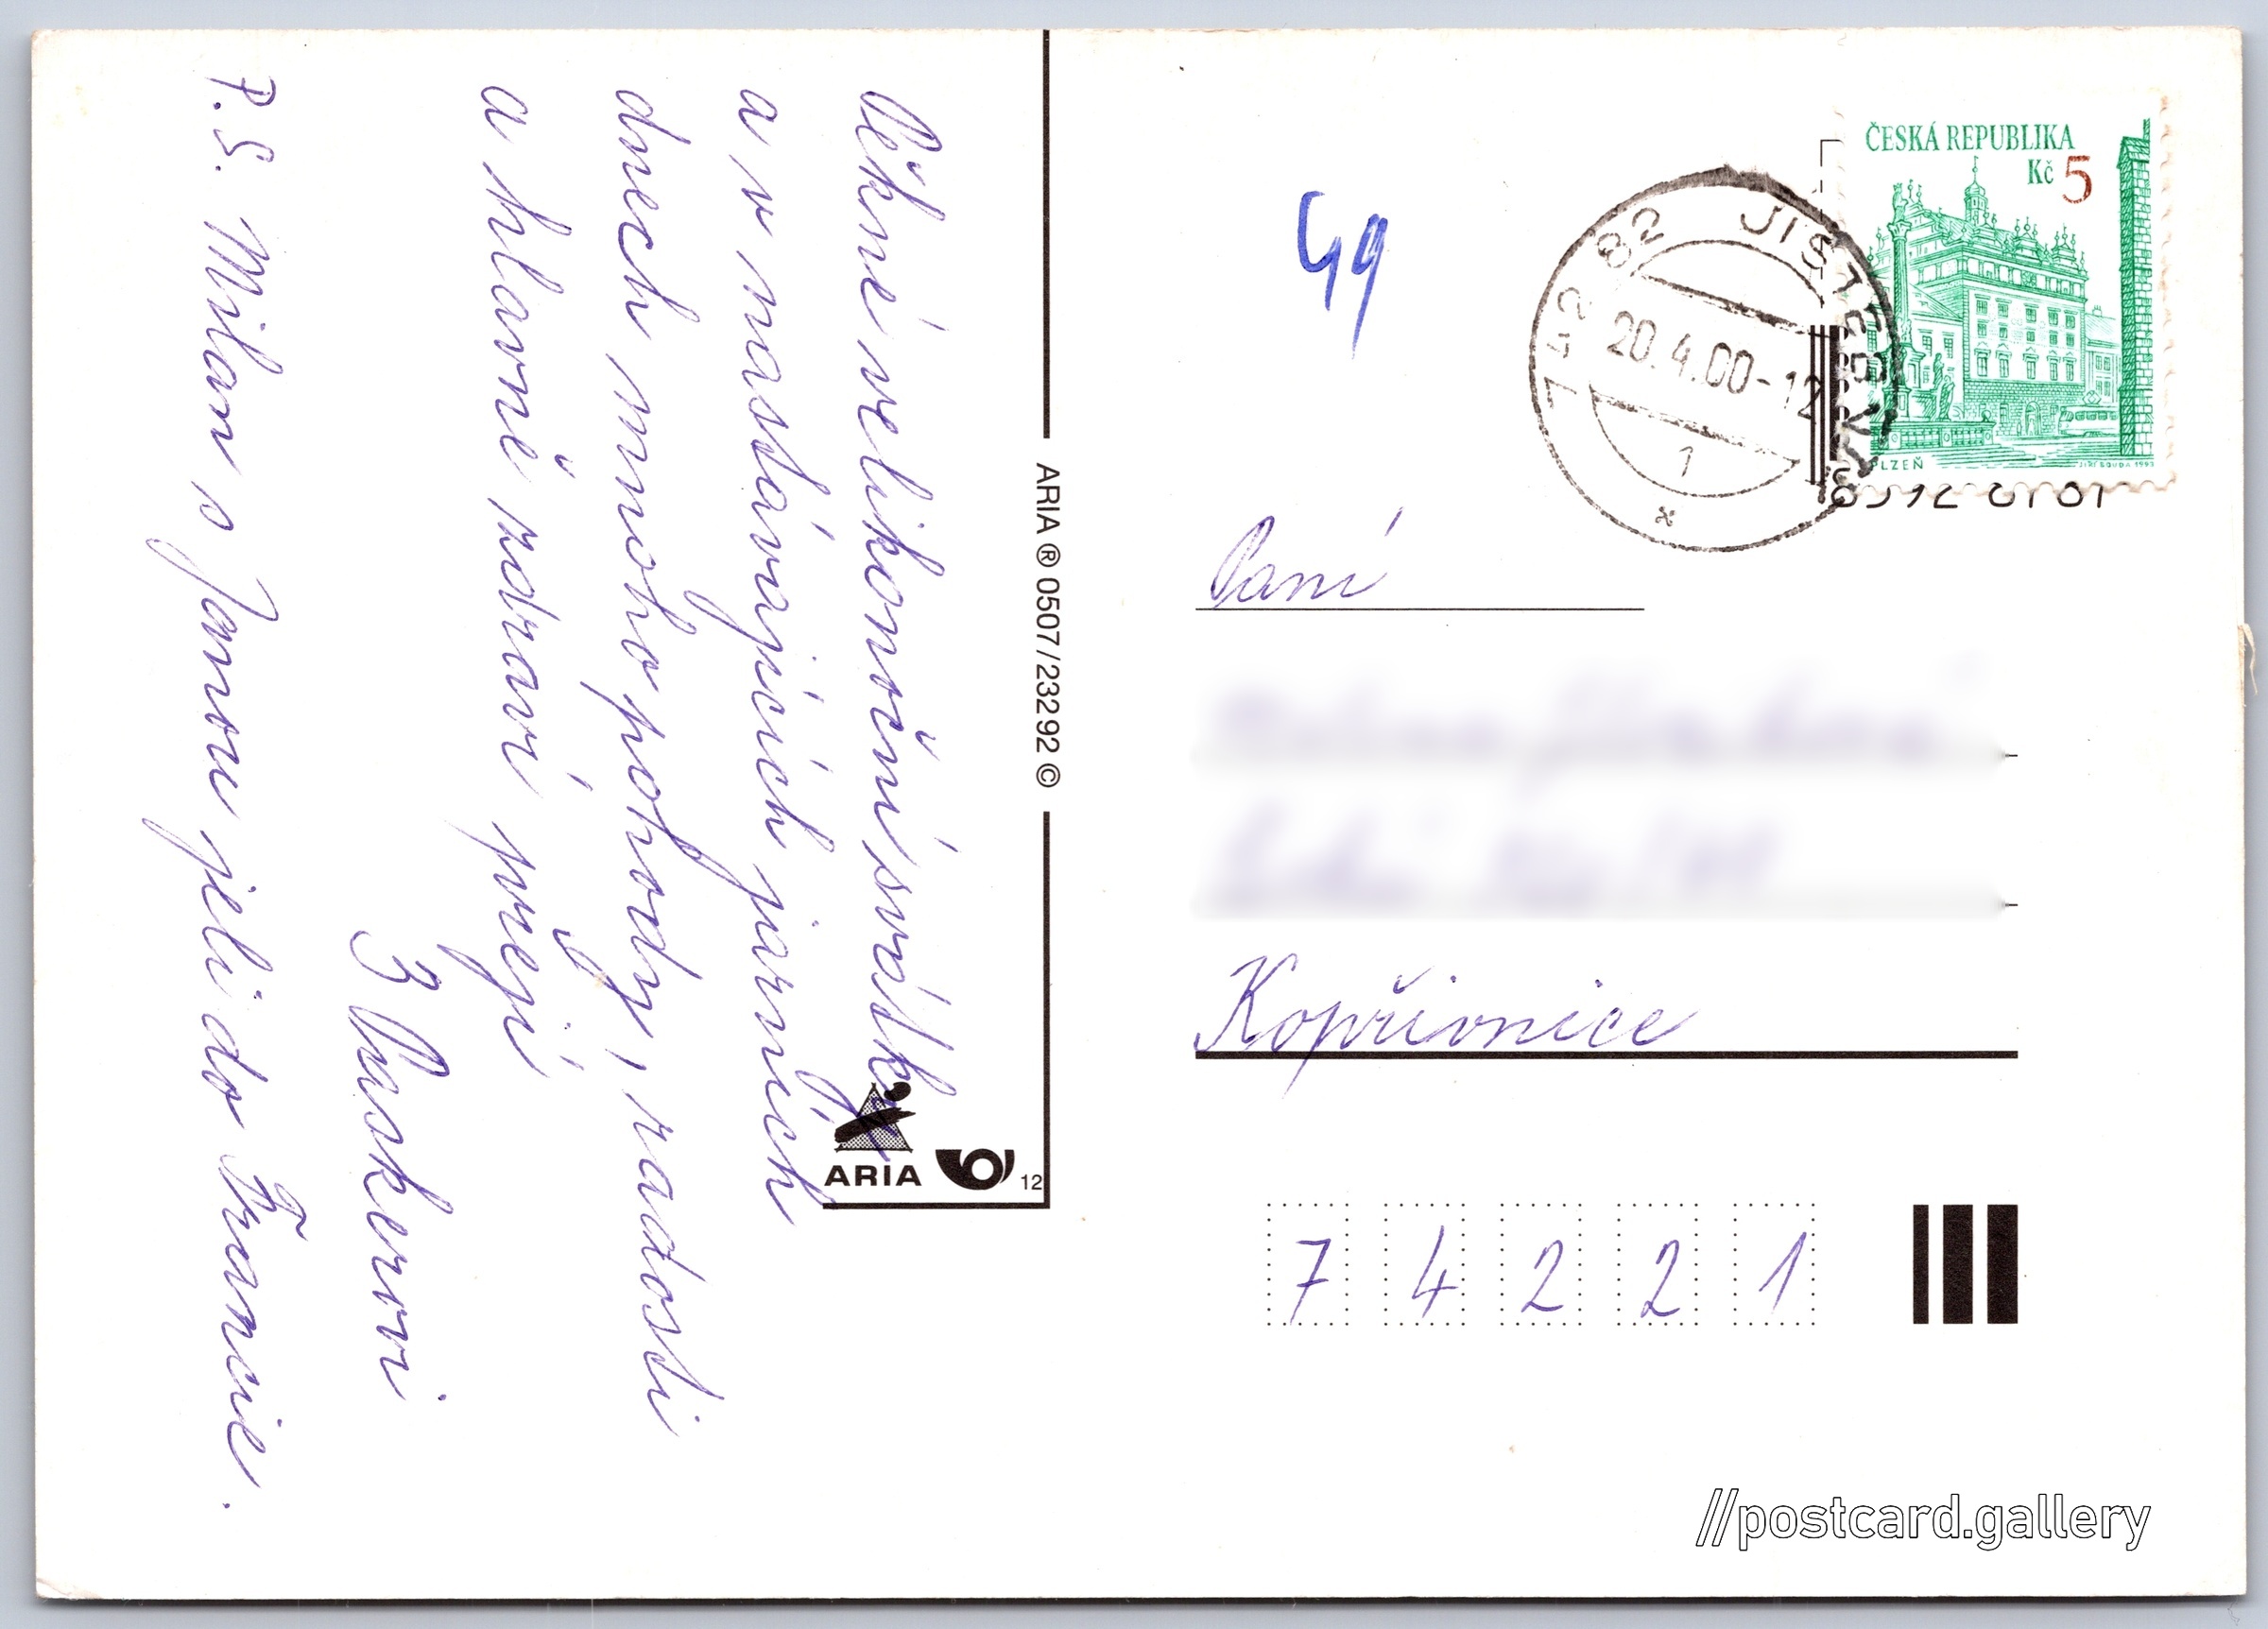 Pěkné velikonoční svátky
a v nastávajících jarních
dnech mnoho pohody, radosti
a hlavně zdraví přejí
Paskerovi
P.S. Milan s Janou jeli do Francie.
ARIA ® 0507/23292 ©
ARIA
12
49
742 82 JISTEBNÍK
20.4.00-12
1
ČESKÁ REPUBLIKA
Kč 5
PLZEŇ
JIŘÍ BOUDA 1993
Paní
Kopřivnice
7 4 2 2 1
//postcard.gallery